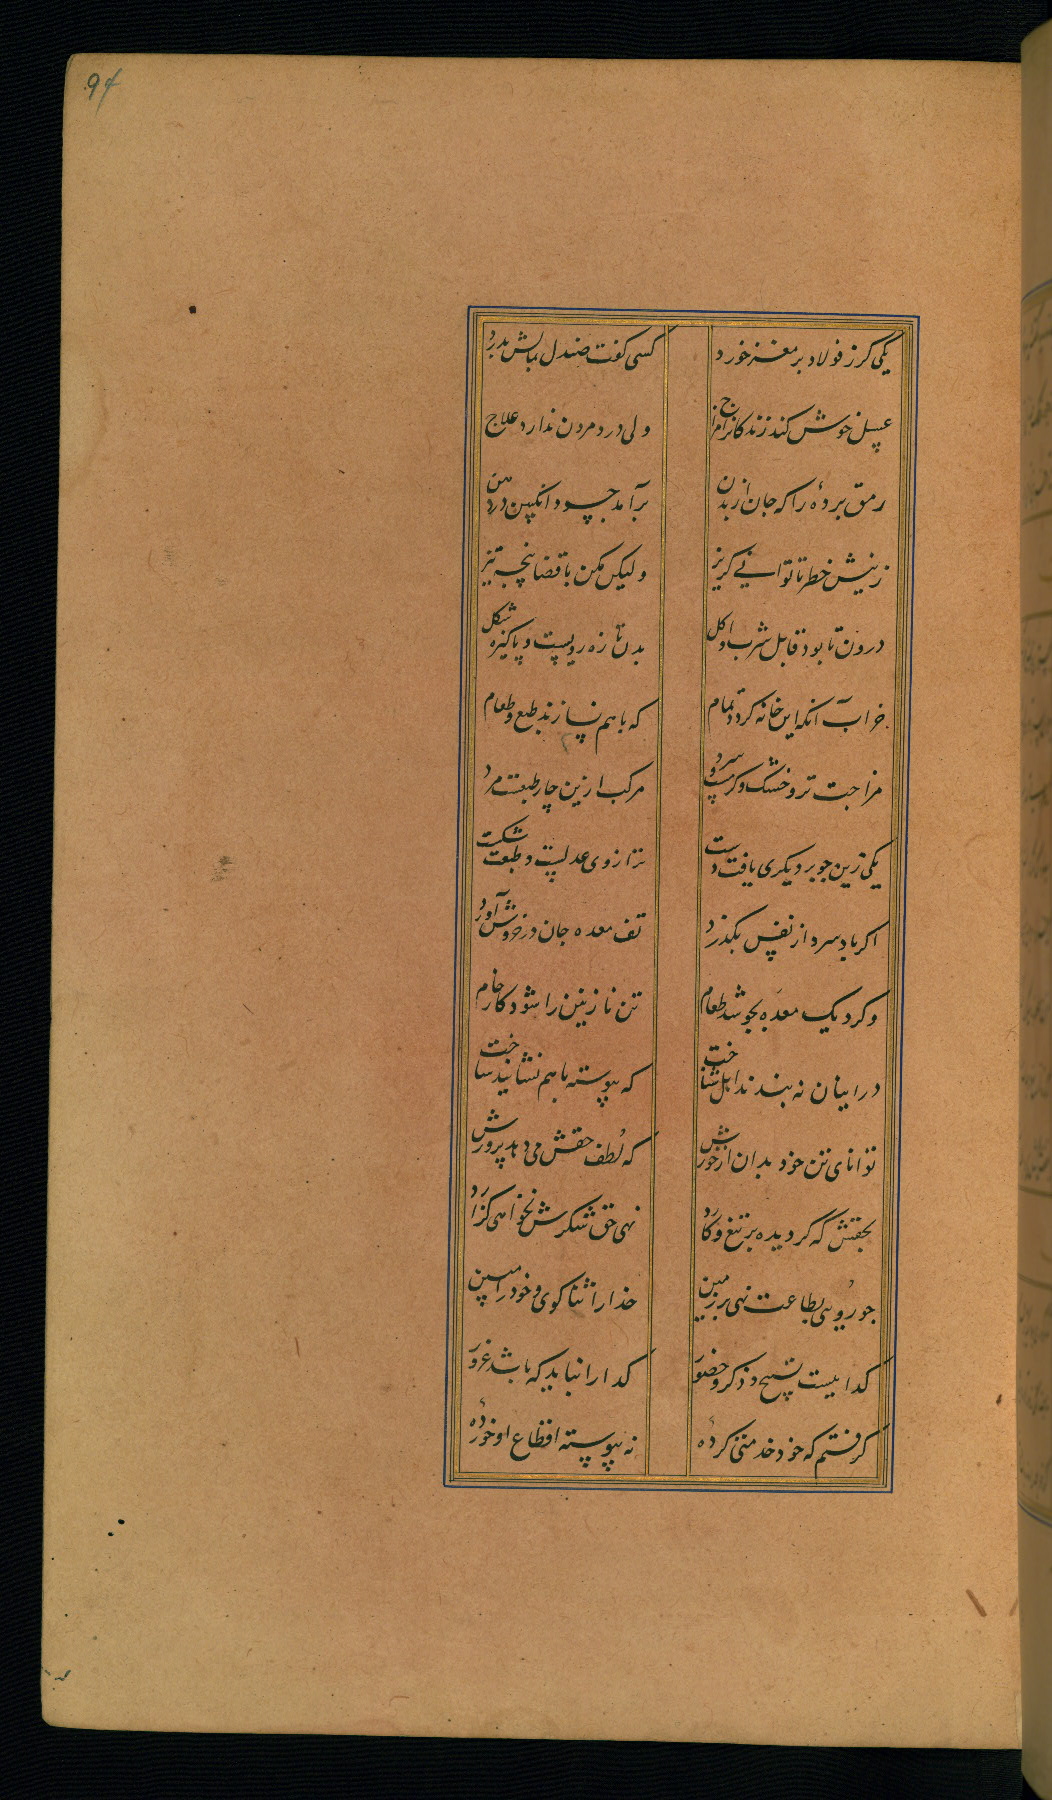 94
یکی گرز فولاد بر مغز خورد کسی گفت صندل بمالش بدرد
عسل خوش کند زندکانرا مزاج ولی درد مردن ندارد علاج
رمق بردهٔ را که جان از بدن برآمد چه سود انگبین در دهن
ز پیش خطر تا توانی گریز ولیکن مکن با قضا پنجه تیز
درون تا بود قابل شرب و اکل بدن تازه رویست و پاکیزه شکل
خراب آنگه این خانه گردد تمام که با هم نسازند طبع و طعام
مزاجت تر و خشک و گرمست و سرد مرکب ازین چار طبعست مرد
یکی زین چو بر دیگری یافت دست ترازوی عدلیت و طبعت شکست
اگر باد سرد از نفس بگذرد تف معده جان در خروش آورد
وگر دیک معده بجوشد طعام تن نازنین را شود کار خام
در اینان نه بندند اهل شناخت که پیوسته با هم نشایند ساخت
توانای تن خود بدان از خورش که لُطف حقش می دهد پرورش
بحقش که گر دیده بر تیغ و کارد نهی حق شکرش نخواهی گزارد
چو رُویی بطاعت نهی بر زمین خدا را ثنا گوی و خود را مبین
گداییست تسبیح و ذکر و حضور گدا را نباید که باشد غرور
گرفتم که خود خدمتی کردهٔ نه پیوسته اقطاع او خوردهٔ